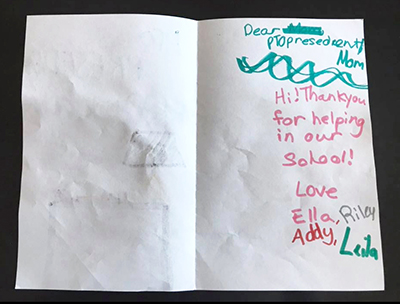 Dear
PTOpresedeent/
Mom
Hi! Thankyou
for helping
in our
School!
Love
Ella, Riley
Addy, Leila